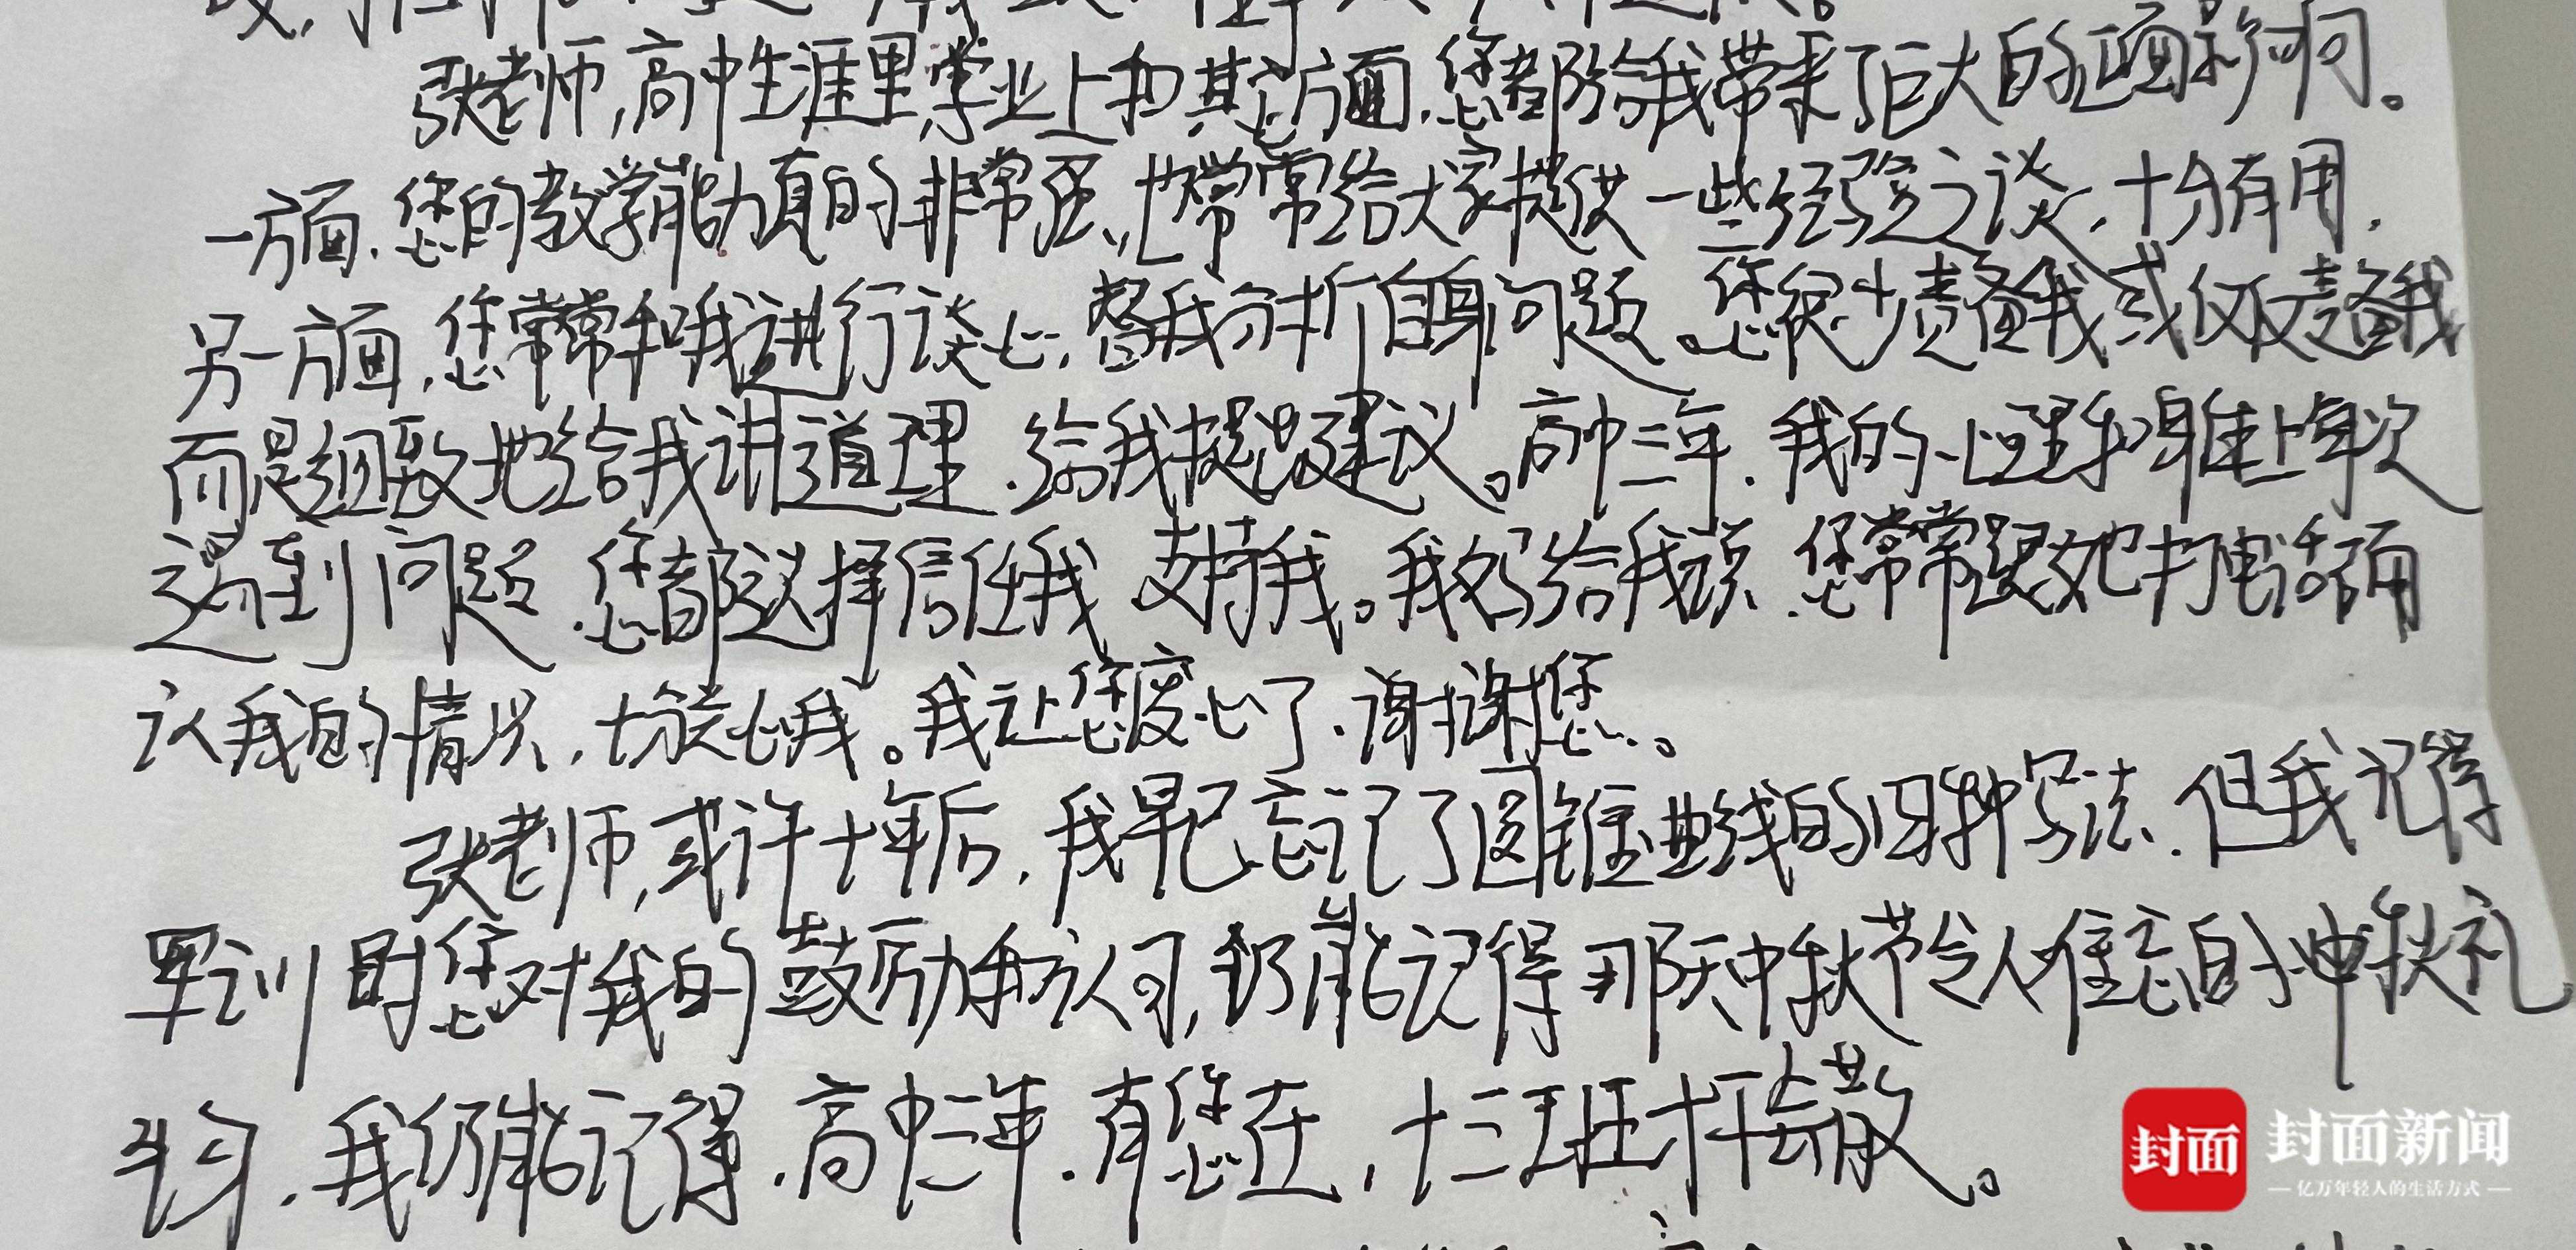 张老师,高中生涯里,学业上和其它方面,您都给我带来了巨大的正面影响。
一方面,您的教学能力真的非常强,也常常给大家提供一些经验之谈,十分有用,
另一方面,您常常和我进行谈心,帮我分析自身问题。您很少责备我或仅仅责备我
而是细致地给我讲道理,给我提出建议。高中三年,我的心理和身体上每次
遇到问题,您都选择信任我 支持我。我妈给我说,您常常跟她打电话确
认我的情况,十分关心我。我让您废心了,谢谢您。
张老师,或许十年后,我早已忘记了圆锥曲线的四种写法,但我记得
军训时您对我的鼓励和认可,仍能记得那天中秋节令人难忘的中秋礼
物,我仍能记得,高中三年,有您在,十三班才不会散。
封面
封面新闻
—亿万年轻人的生活方式—